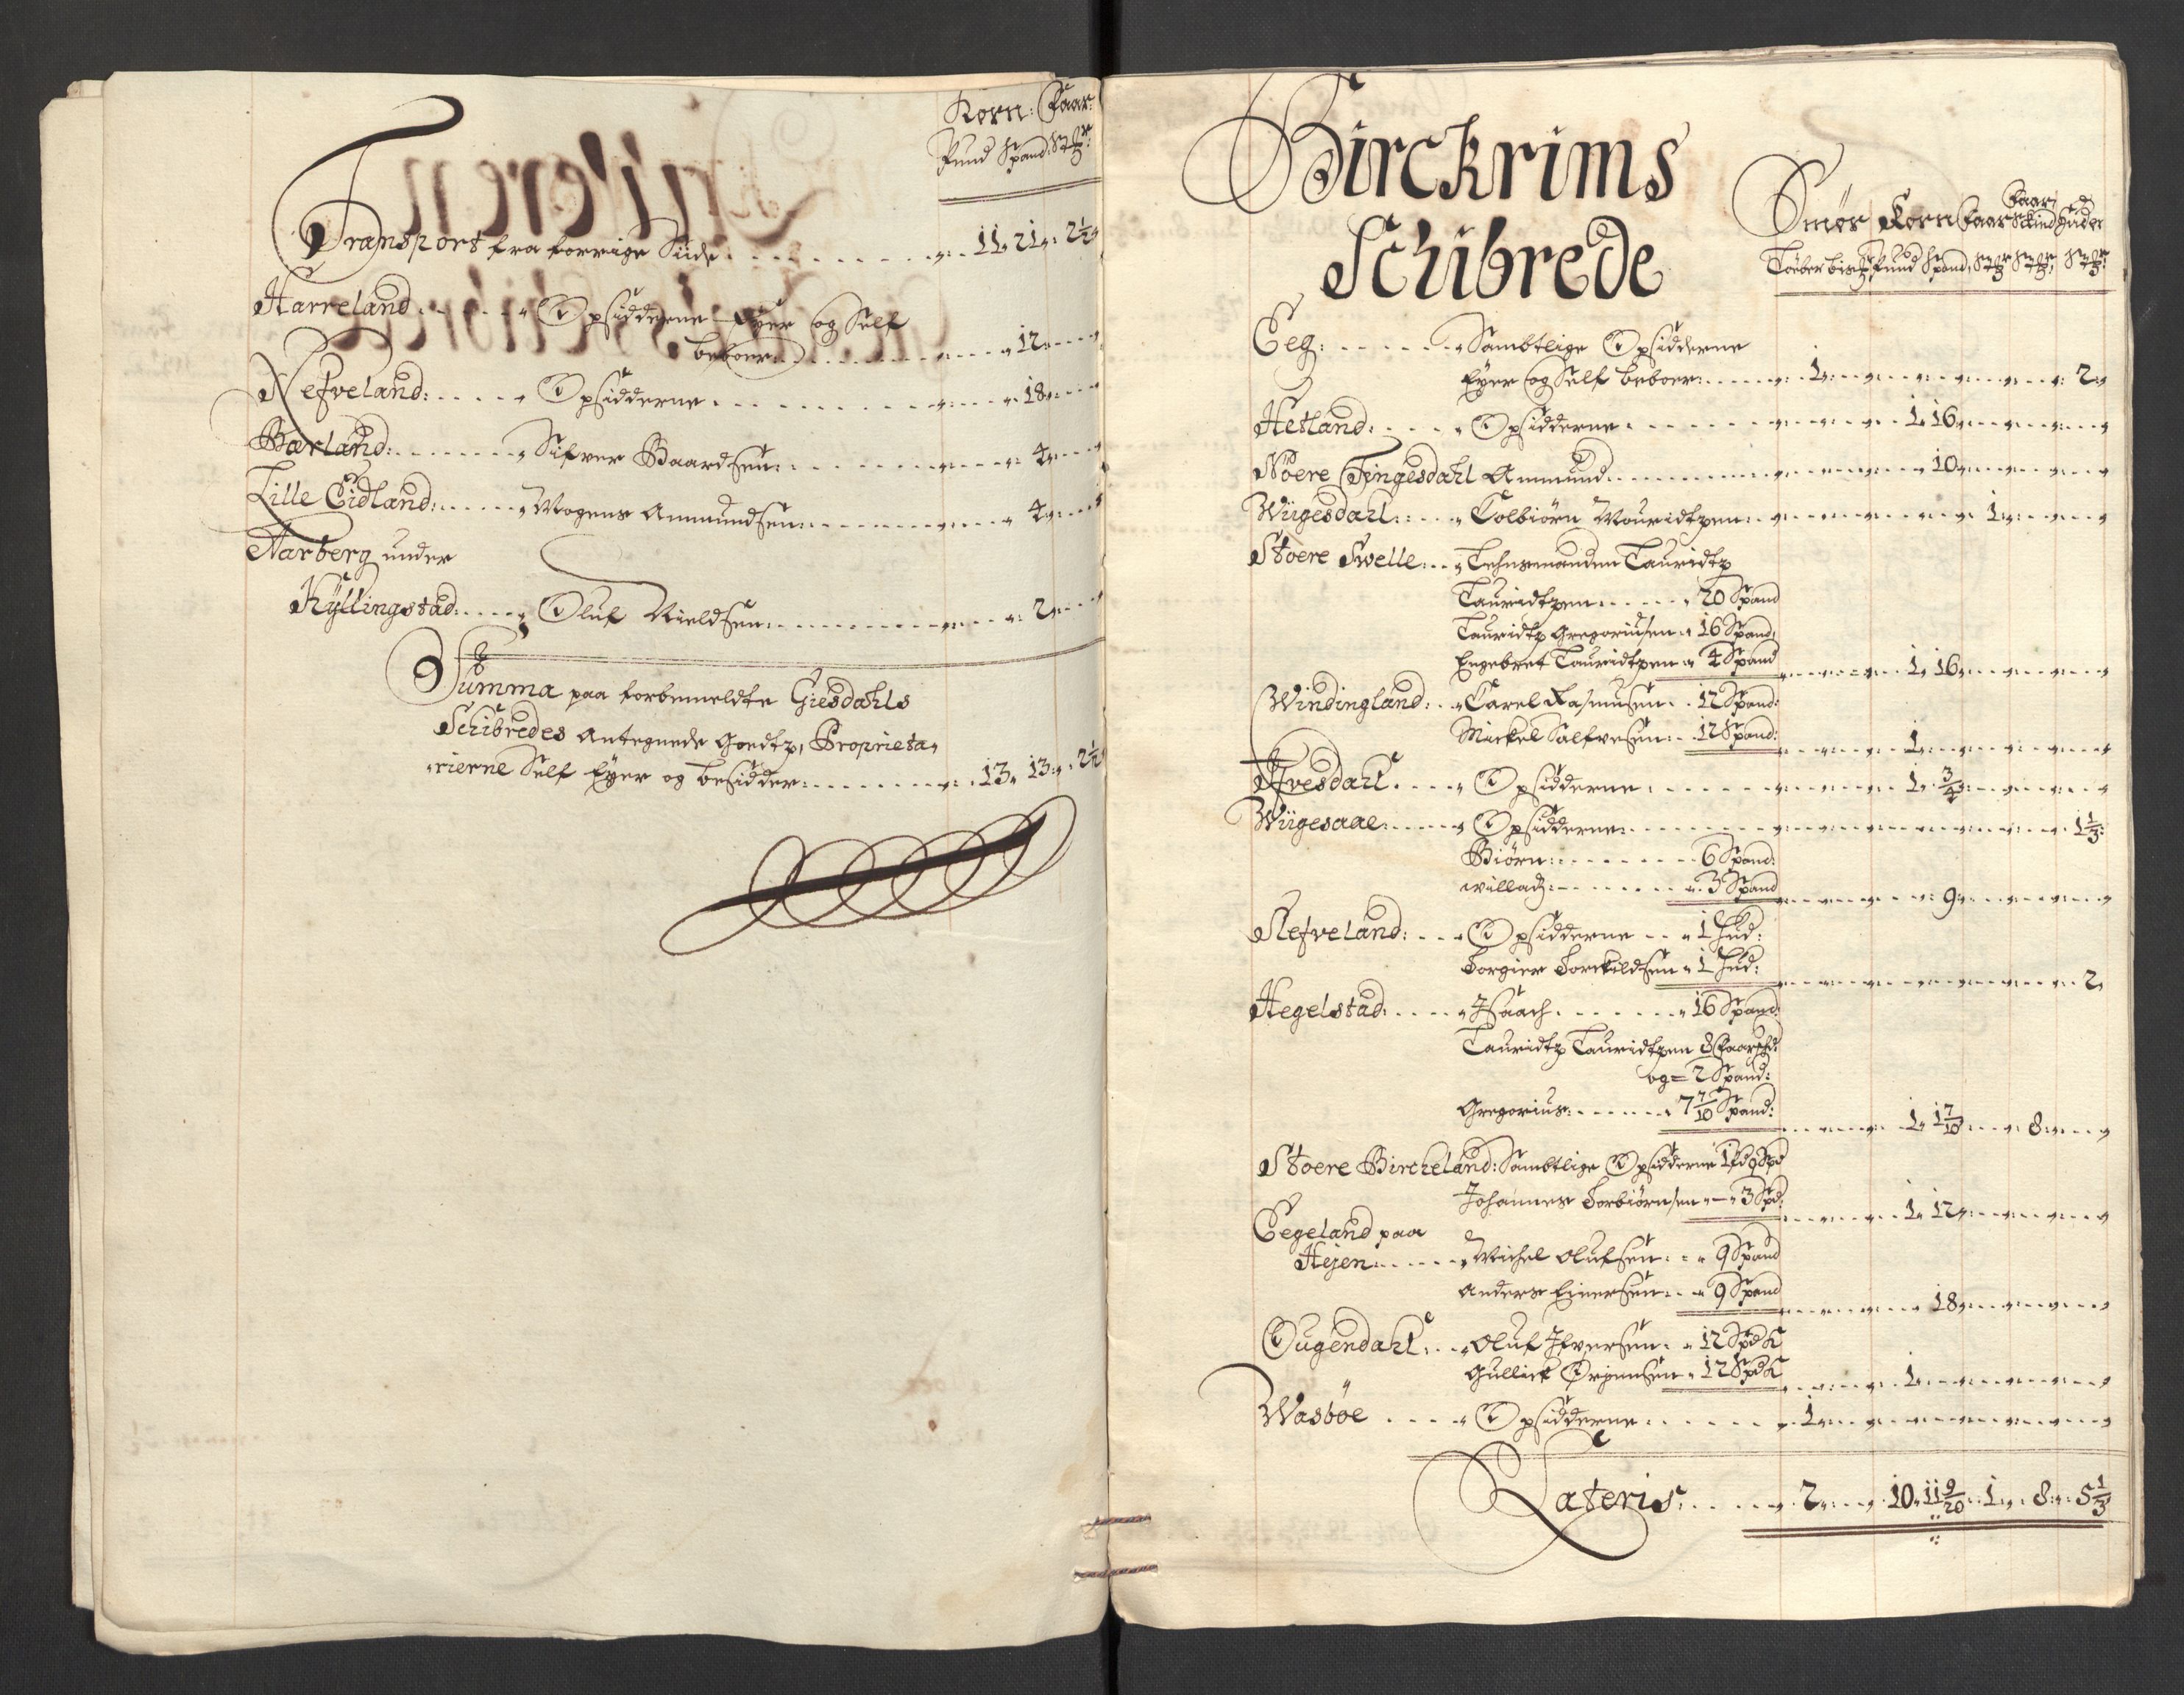 Korn: Faar
Pund Spand: Stkr:
Transport fra forrige Siide . . . . . 11. 21. 2½
Harreland . . . . Opsidderne Eyer og Self
beboer . . . . . 12.
Nefveland: . . . . Opsidderne . . . . . 18.
Bærland: . . . . Sifver Baardsen: . . . . . 4.
Lille Eidland: . . . . Mogens Ammundsen: . . . . . 4.
Aarberg under
Kyllingstad: . . . . Oluf Nieldsen: . . . . . 2.
Summa paa forbemeldte Giesdahls
Schibredes Antegnede Goedtz, Proprieta,
rierne Self Eyer og besidder: . . . . . 13. 13. 2½
Birckrims
Schibrede
Smör Korn Faar Faar Skind Huder
Pund Spand, Stkr Stkr: Stkr:
Eeg: . . . . Sambtlige Opsidderne
Eyer og Self beboer: . . . . 1. . . . . 2.
Hetland: . . . . Opsidderne . . . . 1. 16.
Nöere Tingesdahl Ammund . . . . 10.
Wiigesdazl: . . . . Colbiörn Mouridtzen: . . . . 1.
Stoere Swelle: . . Lehnsmanden Tauridtz
Tauridtzen . . . . 20 Spand
Tauridtz Gregoriusen . 16 Spand:
Engebret Tauridtzen . 4 Spand . . . . 1. 16.
Windingland: . . Carel Rasmusen . . 12 Spand:
Mickel Salfvesen: . . 12 Spand: . . . . 1.
Afvesdahl . . . . Opsidderne . . . . 1. ¾
Wiigesaae: . . . . Opsidderne . . . . 1⅓:
Biörn: . . . . 6 Spand:
willadz: . . . . 3 Spand . . . . 9.
Nefveland: . . . Opsidderne . . 1 Hud:
Torgier Torckildsen . 1 Hud: . . . . 2.
Hegelstad: . . . . Isaach . . . . 16 Spand:
Tauridtz Tauridtzen 8 Faarskd:
og = 2 Spand:
Gregorius: . . . . 7 7/10 Spand: . . . . 1. 1 7/10 . . 8.
Stoere Bircheland: Sambtlige Opsidderne 1 Pd 9 Spd
Johannes Torbiörnsen . — . 3 Spd: . . . . 1. 12.
Eegeland paa
Hejen . . . . Michel Olufsen: . . 9 Spand
Anders Einersen: . . 9 Spand . . . . 18.
Ougendahl: . . Oluf Ifversen . . 12 Spd K
Gullick Örgensen . 12 Spd K . . . . 1.
Wasböe . . . . Opsidderne . . . . 1.
Lateris . . . . 2. . . 10. 11 9/20. 1. 8. 5⅓